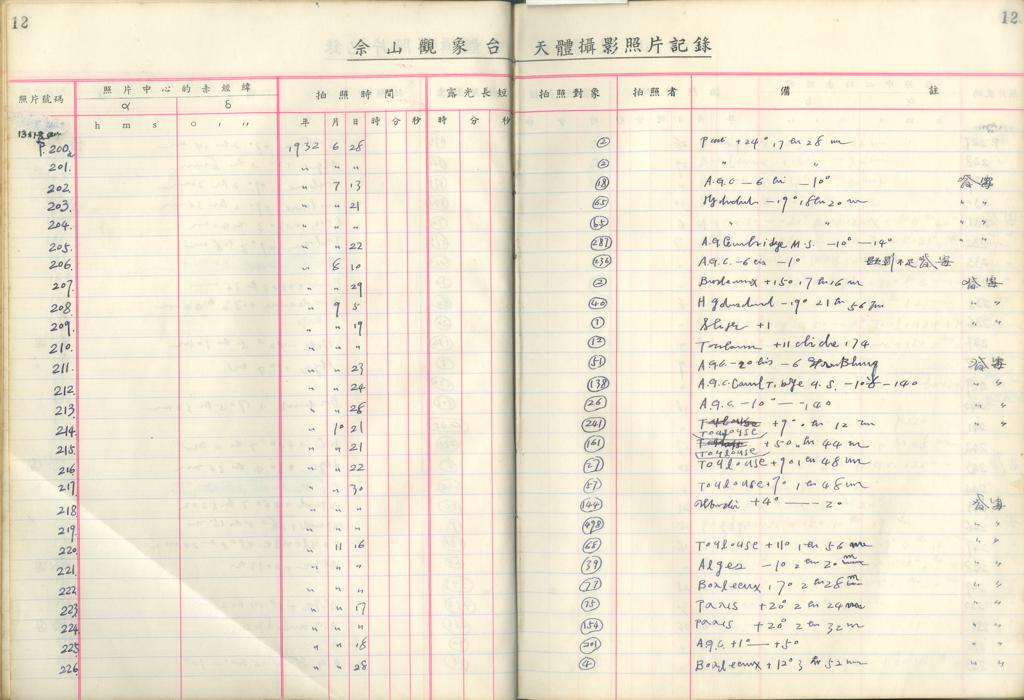 12 12
佘山觀象台 天體攝影照片記錄
照片號碼 照片中心的赤經緯 拍照時間 露光長短 拍照對象 拍照者 備 註
α δ
h m s o , ,, 年 月 日 時 分 秒 時 分 秒
P. 200 1932 6 28 2 +24° 17 28 m
201. " " " 2 " "
202. " 7 13 18 A.G.C -6 bis -10°
203. " " 21 65 -19° 18 h 20 m
204. " " " 65 " "
205. " " 22 287 A.G. Cambridge M.S. -10° -14°
206. " 8 10 236 A.G.C. -6 bis -1°
207. " " 29 2 +15° 17 h 16 m
208. " 9 5 40 -19° 21 h 56 m
209. " " 19 1 +1
210. " " " 12 +11 cliché 174
211. " " 23 51 A.G.C. -20 bis -6
212. " " 24 138 A.G.C.
213. " " 28 26 A.G.C. -10° - -14°
214. " 10 21 241 Toulouse +9° 12 m
215. " " 21 161 Toulouse +5° 44 m
216. " " 22 27 Toulouse +9° 1 h 48 m
217. " " 30 57 Toulouse +7° 1 h 48 m
218. " " " 144 +4° - -2°
219. " " " 498 " "
220. " 11 16 68 Toulouse +11° 1 h 56 m " "
221. " " " 39 Alger -1° 2 h 20 m " "
222. " " " 27 Bordeaux 17° 2 h 28 m " "
223. " " 17 25 Paris +20° 2 h 24 m " "
224. " " " 154 Paris +20° 2 h 32 m " "
225. " " 18 201 A.G.C. +1° - +5° " "
226. " " 28 4 Bordeaux +12° 3 h 52 m " "